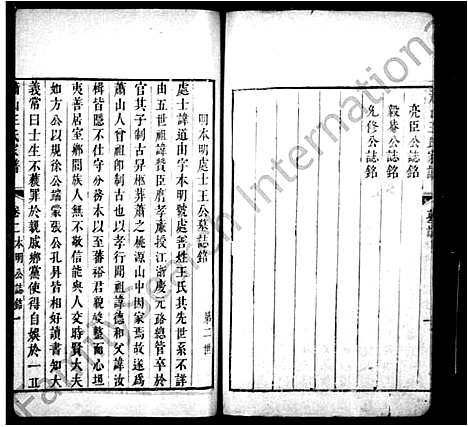 亮臣公誌銘
毅菴公誌銘
允修公誌銘
明本明處士王公墓誌銘
第二世
處士諱道由字本明號處善姓王氏其先世系不詳
由五世祖諱贊臣膺孝廉授江浙慶元路總管卒
官其子制古舁柩葬蕭之桃源山中因家焉故遂爲
蕭山人曾祖卽制古也以孝行聞祖諱德和父諱汝
楫皆隱不仕守分務本以至蕃裕君貌峻整而心坦
夷善居室鄉閭族人無不敬信能與人交時賢大夫
如方公以規徐公端蒙張公孔昇皆相好讀書知大
義常曰士生不獲罪於親戚鄉黨使得自娛於一丘
蕭山王氏家譜 卷二 本明公誌銘 一
FamilySearch International